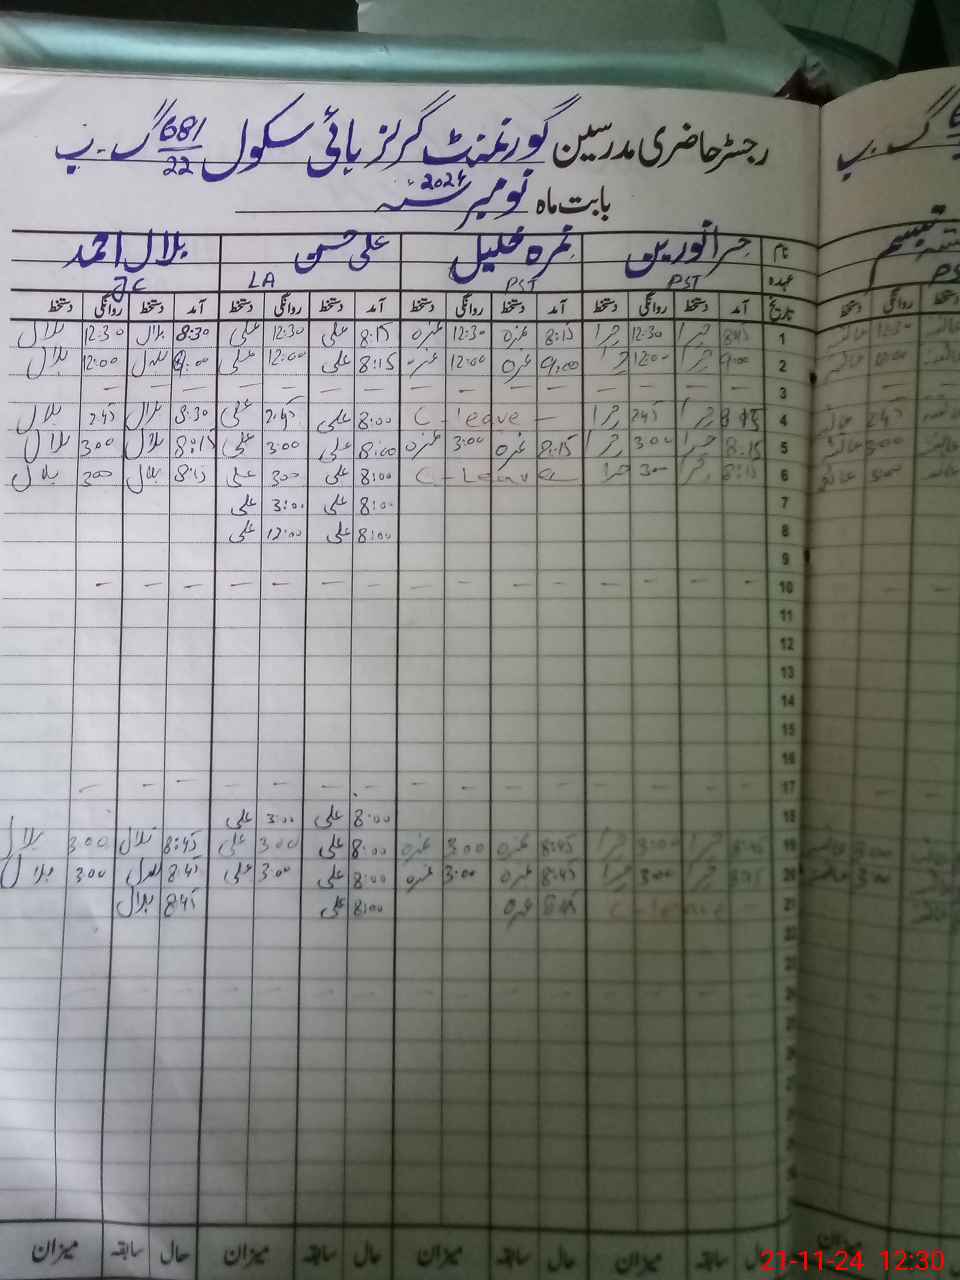 رجسٹر حاضری مدرسین گورنمنٹ گرلز ہائی سکول 681/22 گ۔ب
بابت ماہ نومبر 2024
نام حرا نورین نمرہ خلیل علی حسن بلال احمد
عہدہ PST PST LA JC
تاریخ آمد دستخط روانگی دستخط آمد دستخط روانگی دستخط آمد دستخط روانگی دستخط آمد دستخط روانگی دستخط
1 8:45 حرا 12:30 حرا 8:15 نمرہ 12:30 نمرہ 8:15 علی 12:30 علی 8:30 بلال 12:30 بلال
2 9:00 حرا 12:00 حرا 9:00 نمرہ 12:00 نمرہ 8:15 علی 12:00 علی 9:00 بلال 12:00 بلال
3 — — — — — — — — — — — —
4 8:45 حرا 2:45 حرا C-leave — 8:00 علی 2:45 علی 8:30 بلال 2:45 بلال
5 8:15 حرا 3:00 حرا 8:15 نمرہ 3:00 نمرہ 8:00 علی 3:00 علی 8:15 بلال 3:00 بلال
6 8:15 حرا 3:00 حرا C-Leave 8:00 علی 3:00 علی 8:15 بلال 3:00 بلال
7 8:00 علی 3:00 علی
8 8:00 علی 12:00 علی
9
10 — — — — — — — — — — — —
11
12
13
14
15
16
17 — — — — — — — — — — — —
18 8:00 علی 3:00 علی
19 8:45 حرا 3:00 حرا 8:45 نمرہ 3:00 نمرہ 8:00 علی 3:00 علی 8:45 بلال 3:00 بلال
20 8:45 حرا 3:00 حرا 8:45 نمرہ 3:00 نمرہ 8:00 علی 3:00 علی 8:45 بلال 3:00 بلال
21 C-leave — 8:45 نمرہ 8:00 علی 8:45 بلال
22
23
24 — — — — — — — — — — — —
حال سابقہ میزان حال سابقہ میزان حال سابقہ میزان حال سابقہ میزان
21-11-24 12:30